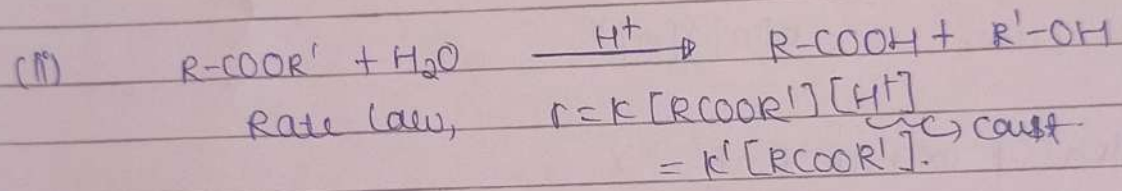 (ii) R-COOR' + H₂O —H⁺→ R-COOH + R'-OH
Rate law, r = K [RCOOR'] [H⁺] → const
= K' [RCOOR'].